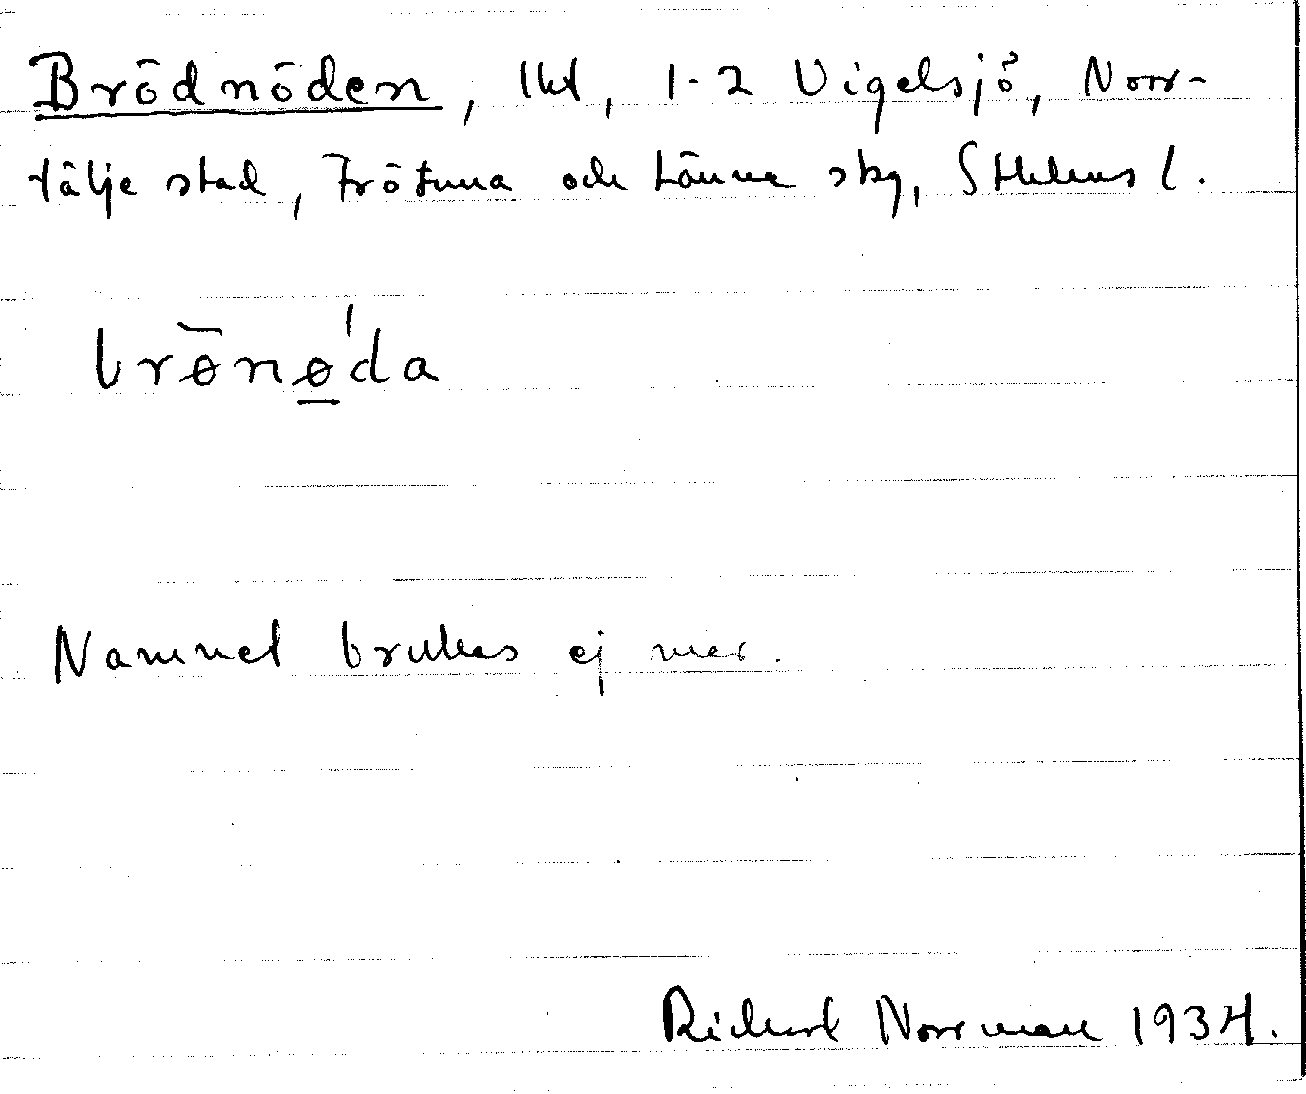 Brödnöden, lht, 1-2 Vigelsjö, Norr-
tälje stad, Frötuna och Länna skg, Sthlms l.
brø̄nø̱'da
Namnet brukas ej mer.
Richard Norrman 1934.